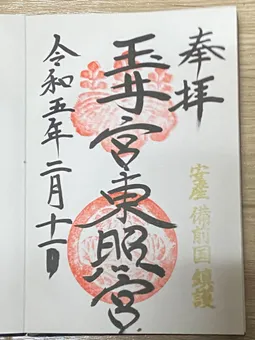 奉拝
安産 備前国総鎮護
玉井宮東照宮
令和五年二月十一日